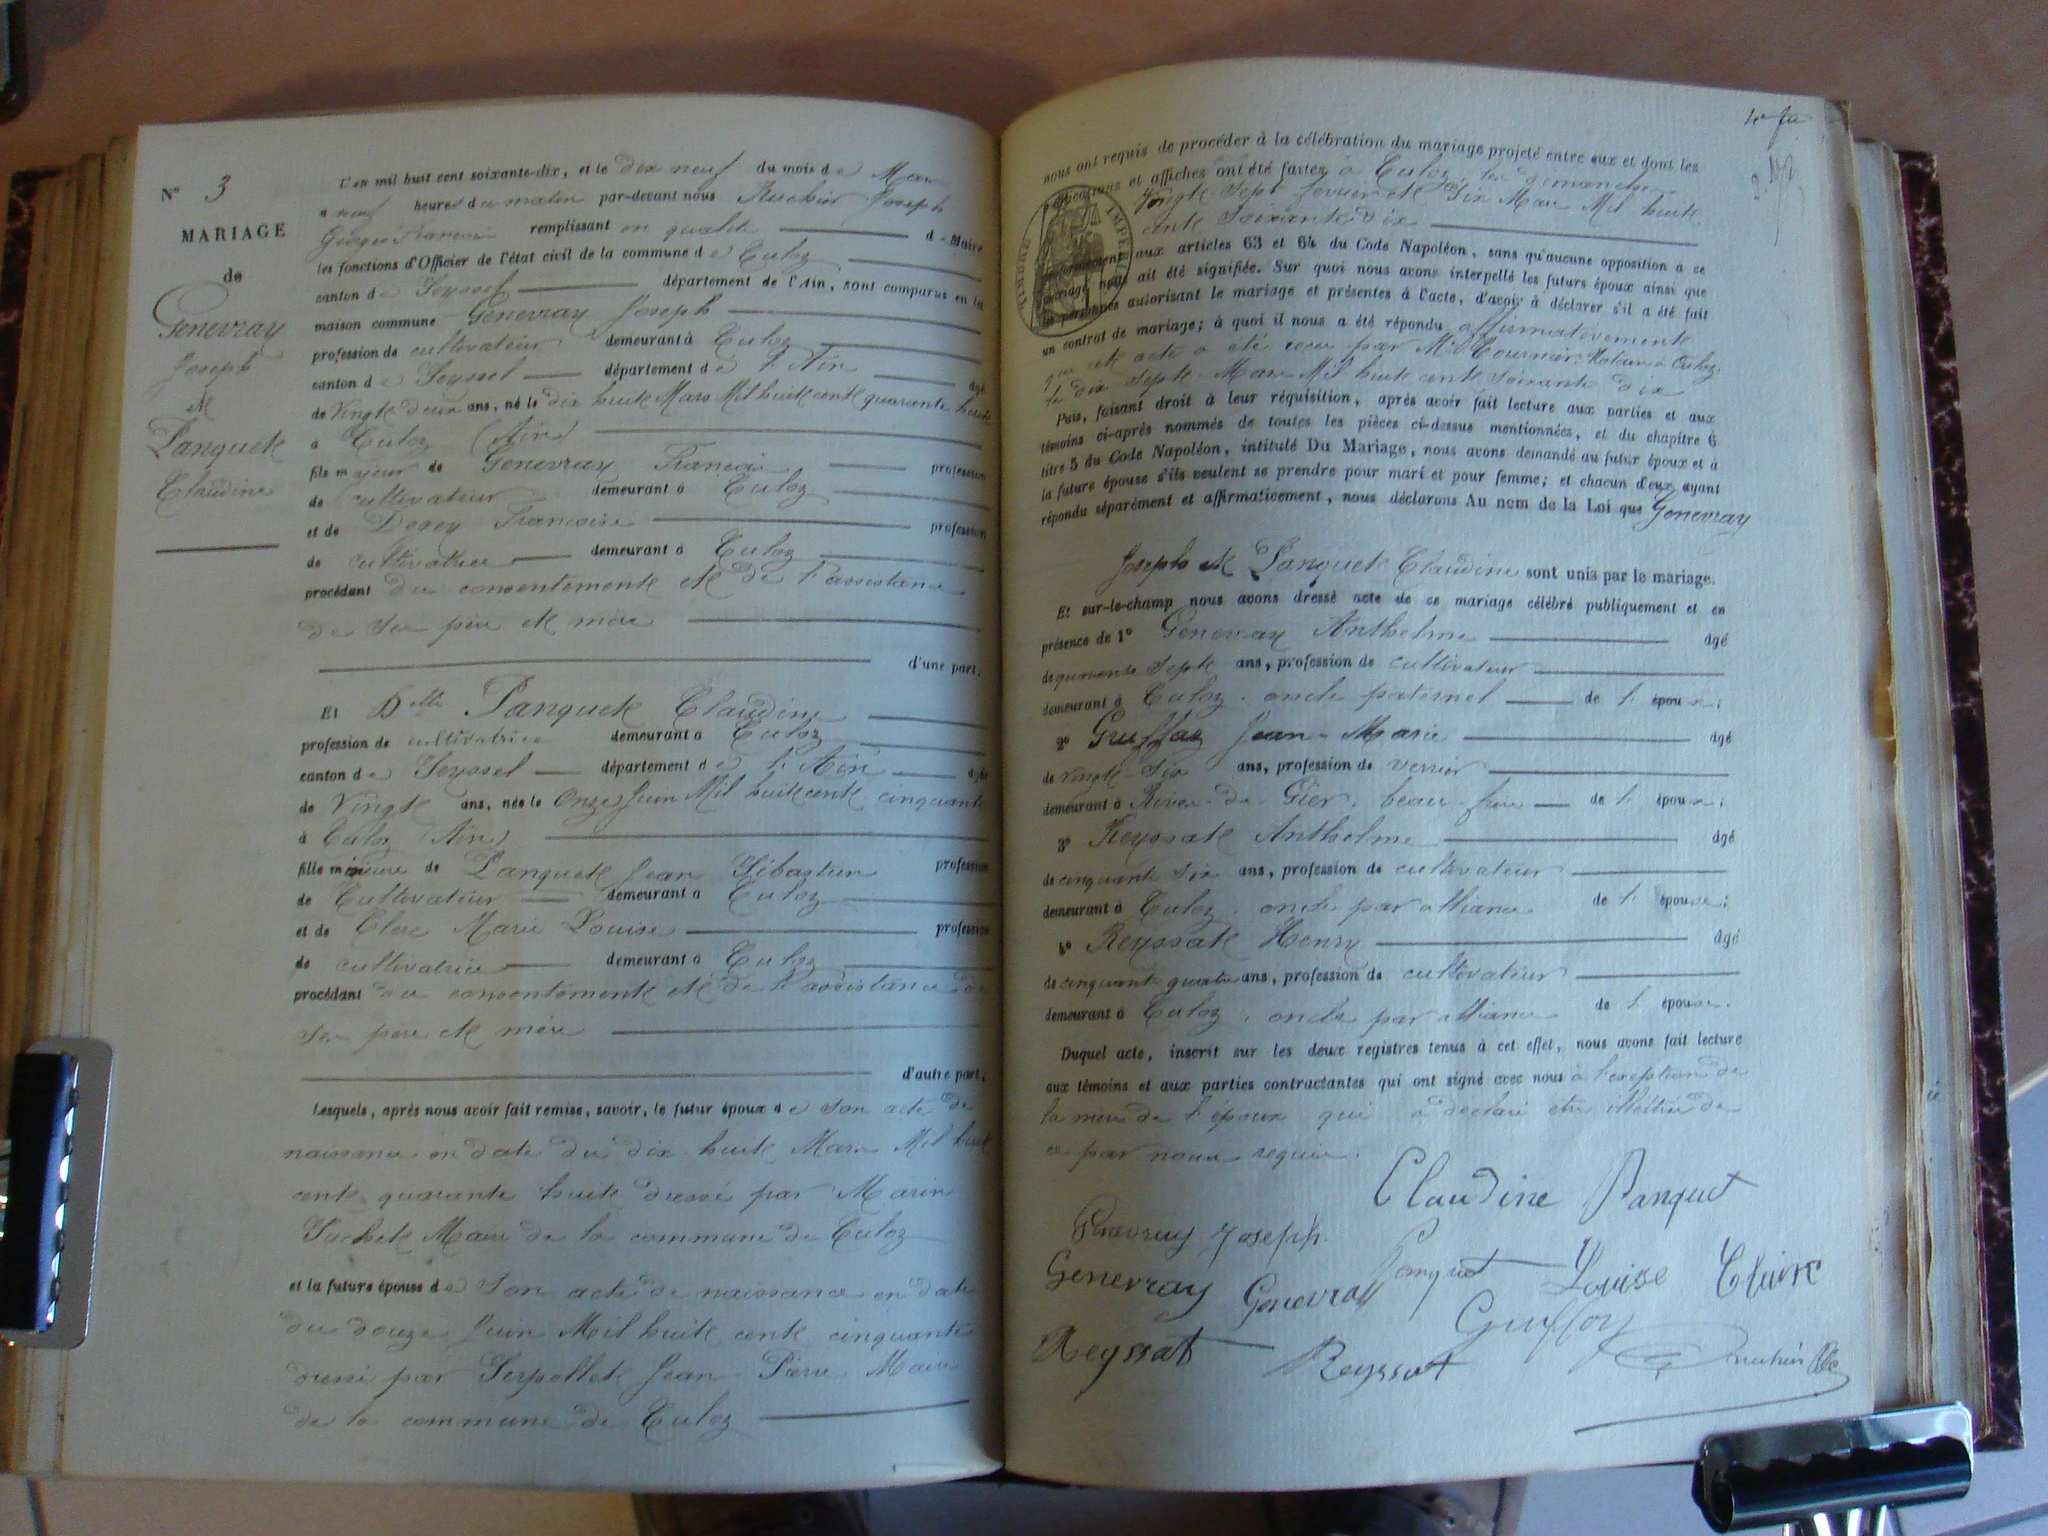 N° 3
MARIAGE
de
Genevray
Joseph
et
Panquet
Claudine
L'an mil huit cent soixante-dix, et le dix neuf du mois de Mars
à neuf heures du matin par-devant nous Joseph
Georges François remplissant en qualité de Maire
les fonctions d'Officier de l'état civil de la commune de Culoz
canton de Seyssel département de l'Ain, sont comparus en la
maison commune Genevray Joseph
profession de cultivateur demeurant à Culoz
canton de Seyssel département de l'Ain âgé
de Vingt deux ans, né le dix huit Mars Mil huit cent quarante huit
à Culoz (Ain)
fils majeur de Genevray François profession
de cultivateur demeurant à Culoz
et de Françoise profession
de cultivatrice demeurant à Culoz
procédant du consentement et de l'assistance
de ses père et mère
d'une part.
Et Delle Panquet Claudine
profession de cultivatrice demeurant à Culoz
canton de Seyssel département de l'Ain âgée
de Vingt ans, née le Onze Juin Mil huit cent cinquante
à Culoz (Ain)
fille mineure de Panquet Jean Sébastien profession
de Cultivateur demeurant à Culoz
et de Clerc Marie Louise profession
de cultivatrice demeurant à Culoz
procédant du consentement et de l'assistance de
ses père et mère
d'autre part;
Lesquels, après nous avoir fait remise, savoir, le futur époux de son acte de
naissance en date du dix huit Mars Mil huit
cent quarante huit dressé par Marin
Maire de la commune de Culoz
et la future épouse de son acte de naissance en date
du douze Juin Mil huit cent cinquante
dressé par Serpollet Jean Pierre Maire
de la commune de Culoz
nous ont requis de procéder à la célébration du mariage projeté entre eux et dont les
publications et affiches ont été faites à Culoz, les dimanches
Vingt Sept février et Six Mars Mil huit
cent soixante dix
conformément aux articles 63 et 64 du Code Napoléon, sans qu'aucune opposition à ce
mariage nous ait été signifiée. Sur quoi nous avons interpellé les futurs époux ainsi que
les personnes autorisant le mariage et présentes à l'acte, d'avoir à déclarer s'il a été fait
un contrat de mariage; à quoi il nous a été répondu affirmativement
que cet acte a été reçu par Me Notaire à Culoz,
le dix Sept Mars Mil huit cent soixante dix
Puis, faisant droit à leur réquisition, après avoir fait lecture aux parties et aux
témoins ci-après nommés de toutes les pièces ci-dessus mentionnées, et du chapitre 6
titre 5 du Code Napoléon, intitulé Du Mariage, nous avons demandé au futur époux et à
la future épouse s'ils veulent se prendre pour mari et pour femme; et chacun d'eux ayant
répondu séparément et affirmativement, nous déclarons Au nom de la Loi que Genevray
Joseph et Panquet Claudine sont unis par le mariage.
Et sur-le-champ nous avons dressé acte de ce mariage célébré publiquement et en
présence de 1° Genevray Anthelme âgé
de quarante Sept ans, profession de cultivateur
demeurant à Culoz, oncle paternel de l'époux;
2° Guffoy Jean-Marie âgé
de vingt-six ans, profession de verrier
demeurant à Rive-de-Gier, beau-frère de l'épouse;
3° Reyssat Anthelme âgé
de cinquante six ans, profession de cultivateur
demeurant à Culoz, oncle par alliance de l'épouse;
4° Reyssat Henry âgé
de cinquante quatre ans, profession de cultivateur
demeurant à Culoz, oncle par alliance de l'épouse.
Duquel acte, inscrit sur les deux registres tenus à cet effet, nous avons fait lecture
aux témoins et aux parties contractantes qui ont signé avec nous à l'exception de
la mère de l'époux qui a déclaré être illettrée de
ce par nous requise.
Claudine Panquet
Genevray Joseph
Genevray Genevray Panquet Louise Claire
Guffoy
Reyssat Reyssat
TIMBRE IMPERIAL